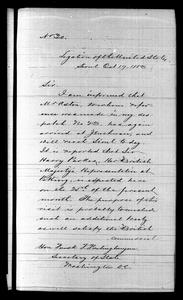 Legation of the United States
Seoul Oct 19. 188
Sir
I am informed that
Mr Aston, to whom refer-
ence was made in my des-
patch No has again
arrived at Jinchuan, and
will reach Seoul to day.
It is reported that Sir
Harry Parkes, Her British
Majesty's Representative at
Peking, is expected here
on the 26th of the present
month. The purpose of his
visit is probably to conclude
such an additional treaty
as will satisfy the British
Hon Fredk T Frelinghuysen
Secretary of State
Washington D.C.